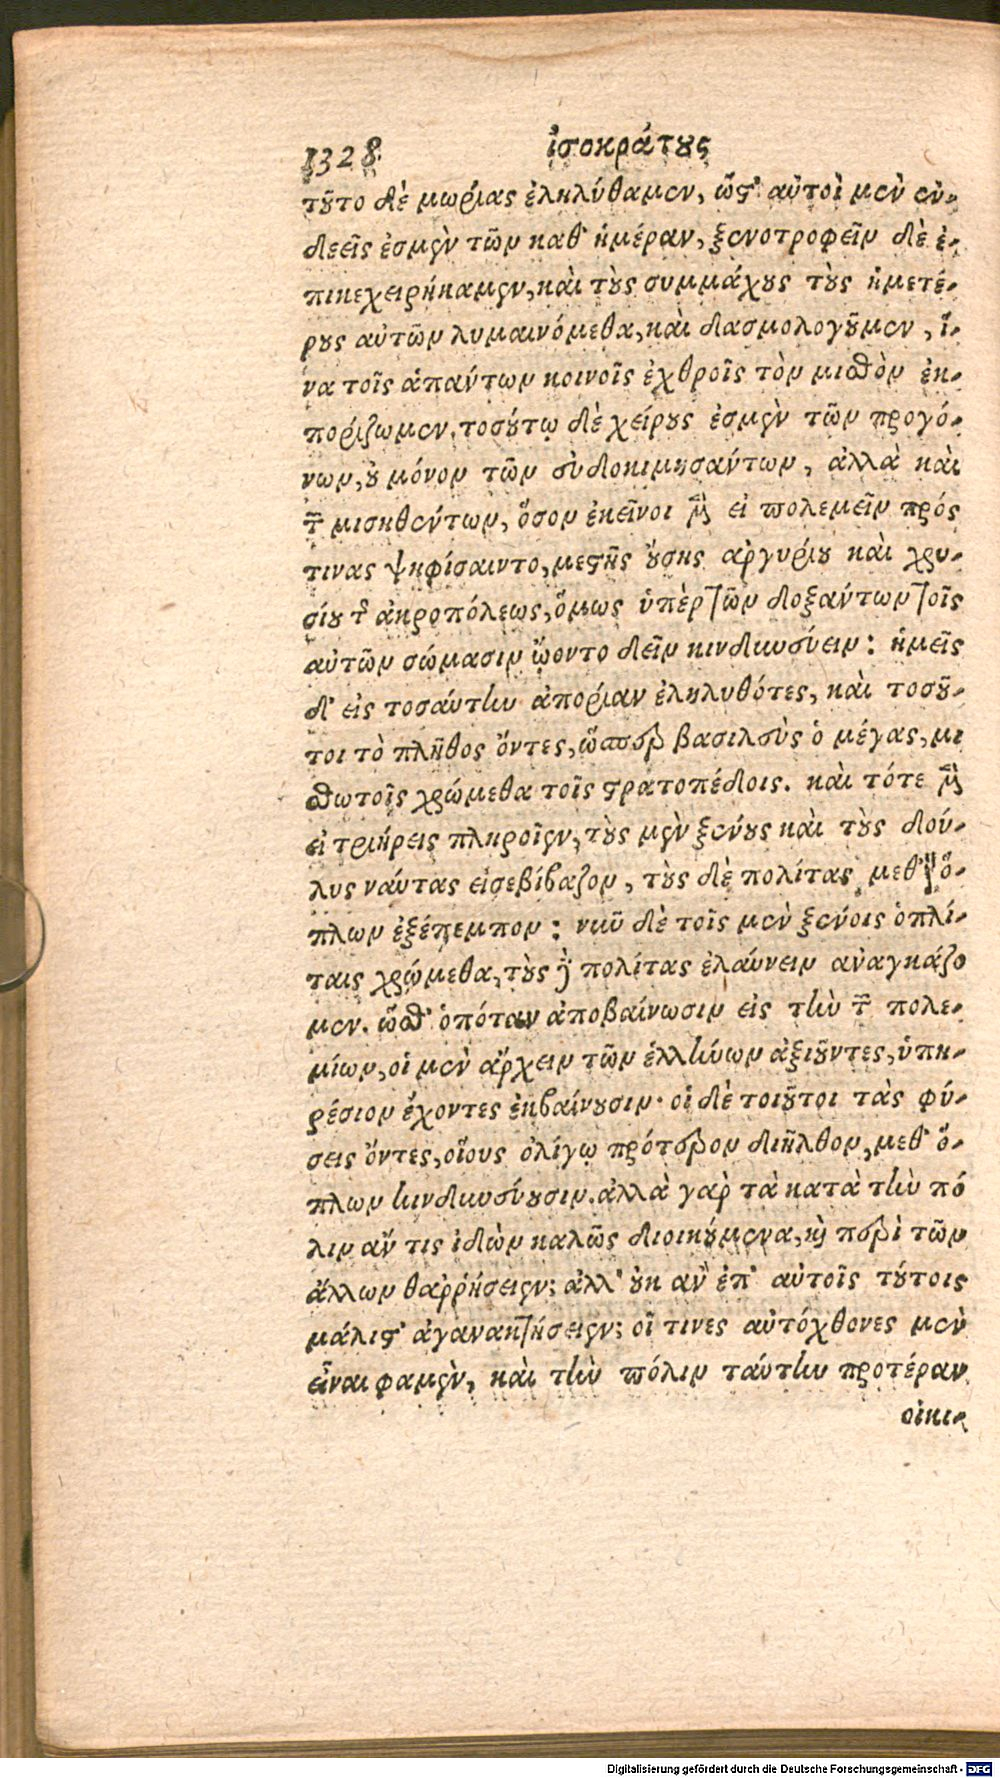 1328 ἰσοκράτους
τοῦτο δὲ μωρίας ἐληλύθαμεν, ὥστ' αὐτοὶ μὲν ἐν-
δεεῖς ἐσμὲν τῶν καθ' ἡμέραν, ξενοτροφεῖν δὲ ἐ-
πικεχειρήκαμεν, καὶ τοὺς συμμάχους τοὺς ἡμετέ-
ρους αὐτῶν λυμαινόμεθα, καὶ δασμολογοῦμεν, ἵ-
να τοῖς ἁπάντων κοινοῖς ἐχθροῖς τὸν μισθὸν ἐκ-
πορίζωμεν. τοσούτῳ δὲ χείρους ἐσμὲν τῶν προγό-
νων, οὐ μόνον τῶν εὐδοκιμησάντων, ἀλλὰ καὶ
τῶν μισηθέντων, ὅσον ἐκεῖνοι μὲν εἰ πολεμεῖν πρός
τινας ψηφίσαιντο, μεστῆς οὔσης ἀργυρίου καὶ χρυ-
σίου τῆς ἀκροπόλεως, ὅμως ὑπὲρ τῶν δοξάντων τοῖς
αὑτῶν σώμασιν ᾤοντο δεῖν κινδυνεύειν: ἡμεῖς
δ' εἰς τοσαύτην ἀπορίαν ἐληλυθότες, καὶ τοσοῦ-
τοι τὸ πλῆθος ὄντες, ὥσπερ βασιλεὺς ὁ μέγας, μι
σθωτοῖς χρώμεθα τοῖς στρατοπέδοις. καὶ τότε μὲν
εἰ τριήρεις πληροῖεν, τοὺς μὲν ξένους καὶ τοὺς δού-
λους ναύτας εἰσεβίβαζον, τοὺς δὲ πολίτας μεθ' ὅ-
πλων ἐξέπεμπον: νῦν δὲ τοῖς μὲν ξένοις ὁπλί-
ταις χρώμεθα, τοὺς δὲ πολίτας ἐλαύνειν ἀναγκάζο
μεν. ὥσθ' ὁπόταν ἀποβαίνωσιν εἰς τὴν τῶν πολε-
μίων, οἱ μὲν ἄρχειν τῶν ἑλλήνων ἀξιοῦντες, ὑπη-
ρέσιον ἔχοντες ἐκβαίνουσιν· οἱ δὲ τοιοῦτοι τὰς φύ-
σεις ὄντες, οἵους ὀλίγῳ πρότερον διῆλθον, μεθ' ὅ-
πλων κινδυνεύουσιν. ἀλλὰ γὰρ τὰ κατὰ τὴν πό
λιν ἄν τις ἰδὼν καλῶς διοικούμενα, καὶ περὶ τῶν
ἄλλων θαῤῥήσειεν; ἀλλ' οὐκ ἂν ἐπ' αὐτοῖς τούτοις
μάλιστ' ἀγανακτήσειεν; οἵ τινες αὐτόχθονες μὲν
εἶναι φαμὲν, καὶ τὴν πόλιν ταύτην προτέραν
οἰκι-
Digitalisierung gefördert durch die Deutsche Forschungsgemeinschaft - DFG